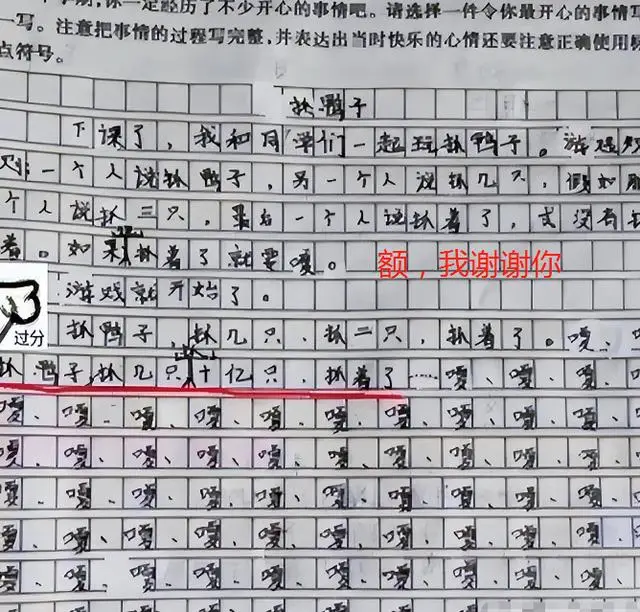 你一定经历了不少开心的事情吧。请选择一件令你最开心的事情写
一写。注意把事情的过程写完整,并表达出当时快乐的心情还要注意正确使用标
点符号。
抓鸭子
下课了，我和同学们一起玩抓鸭子。游戏规
则：一个人说抓鸭子，另一个人说抓几只，假如
个人说抓三只，最后一个人说抓着了，或没有抓
着。如果抓着了就要嘎。 额，我谢谢你
游戏就开始了。
过分
抓鸭子，抓几只、抓二只，抓着了。嘎、
抓鸭子，抓几只，十亿只，抓着了……嘎、嘎、嘎、
嘎、嘎、嘎、嘎、嘎、嘎、嘎、嘎、嘎、嘎、
嘎、嘎、嘎、嘎、嘎、嘎、嘎、嘎、嘎、嘎、
嘎、嘎、嘎、嘎、嘎、嘎、嘎、嘎、嘎、嘎、
嘎、嘎、嘎、嘎、嘎、嘎、嘎、嘎、嘎、嘎、
嘎、嘎、嘎、嘎、嘎、嘎、嘎、嘎、嘎、嘎、